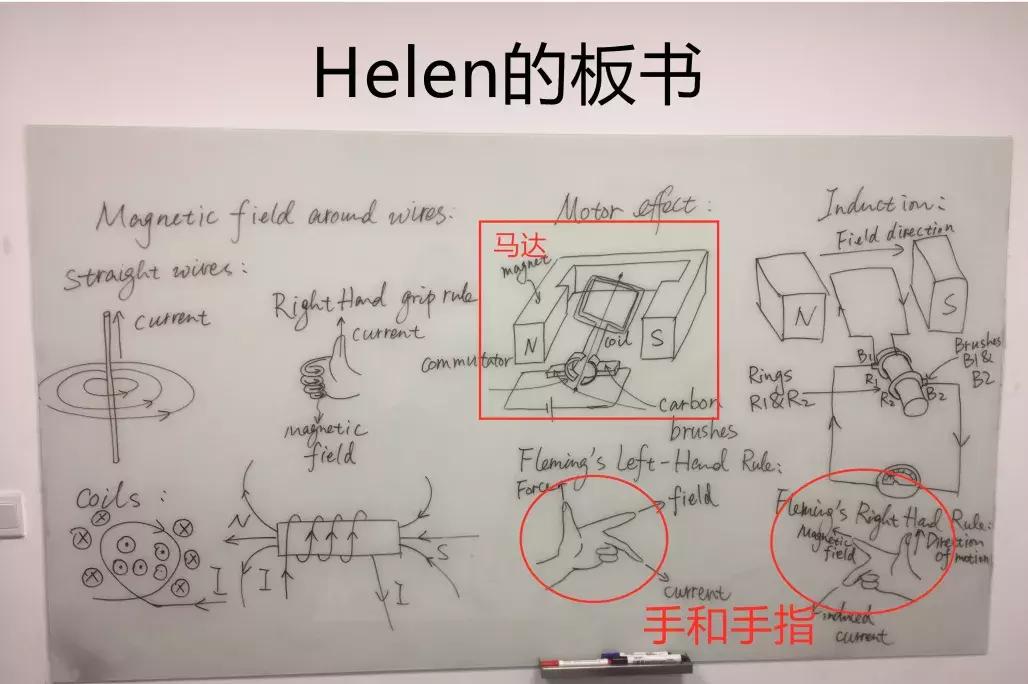 Helen的板书
Magnetic field around wires:
straight wires:
current
Right Hand grip rule
current
magnetic
field
coils:
I
N
S
I
I
Motor effect:
马达
magnet
N
S
coil
commutator
carbon
brushes
Fleming's Left-Hand Rule:
Force
field
current
手和手指
Induction:
Field direction
N
S
B1
R1
R2
B2
Brushes
B1&
B2
Rings
R1&R2
Fleming's Right Hand Rule:
Magnetic
field
Direction
of motion
induced
current